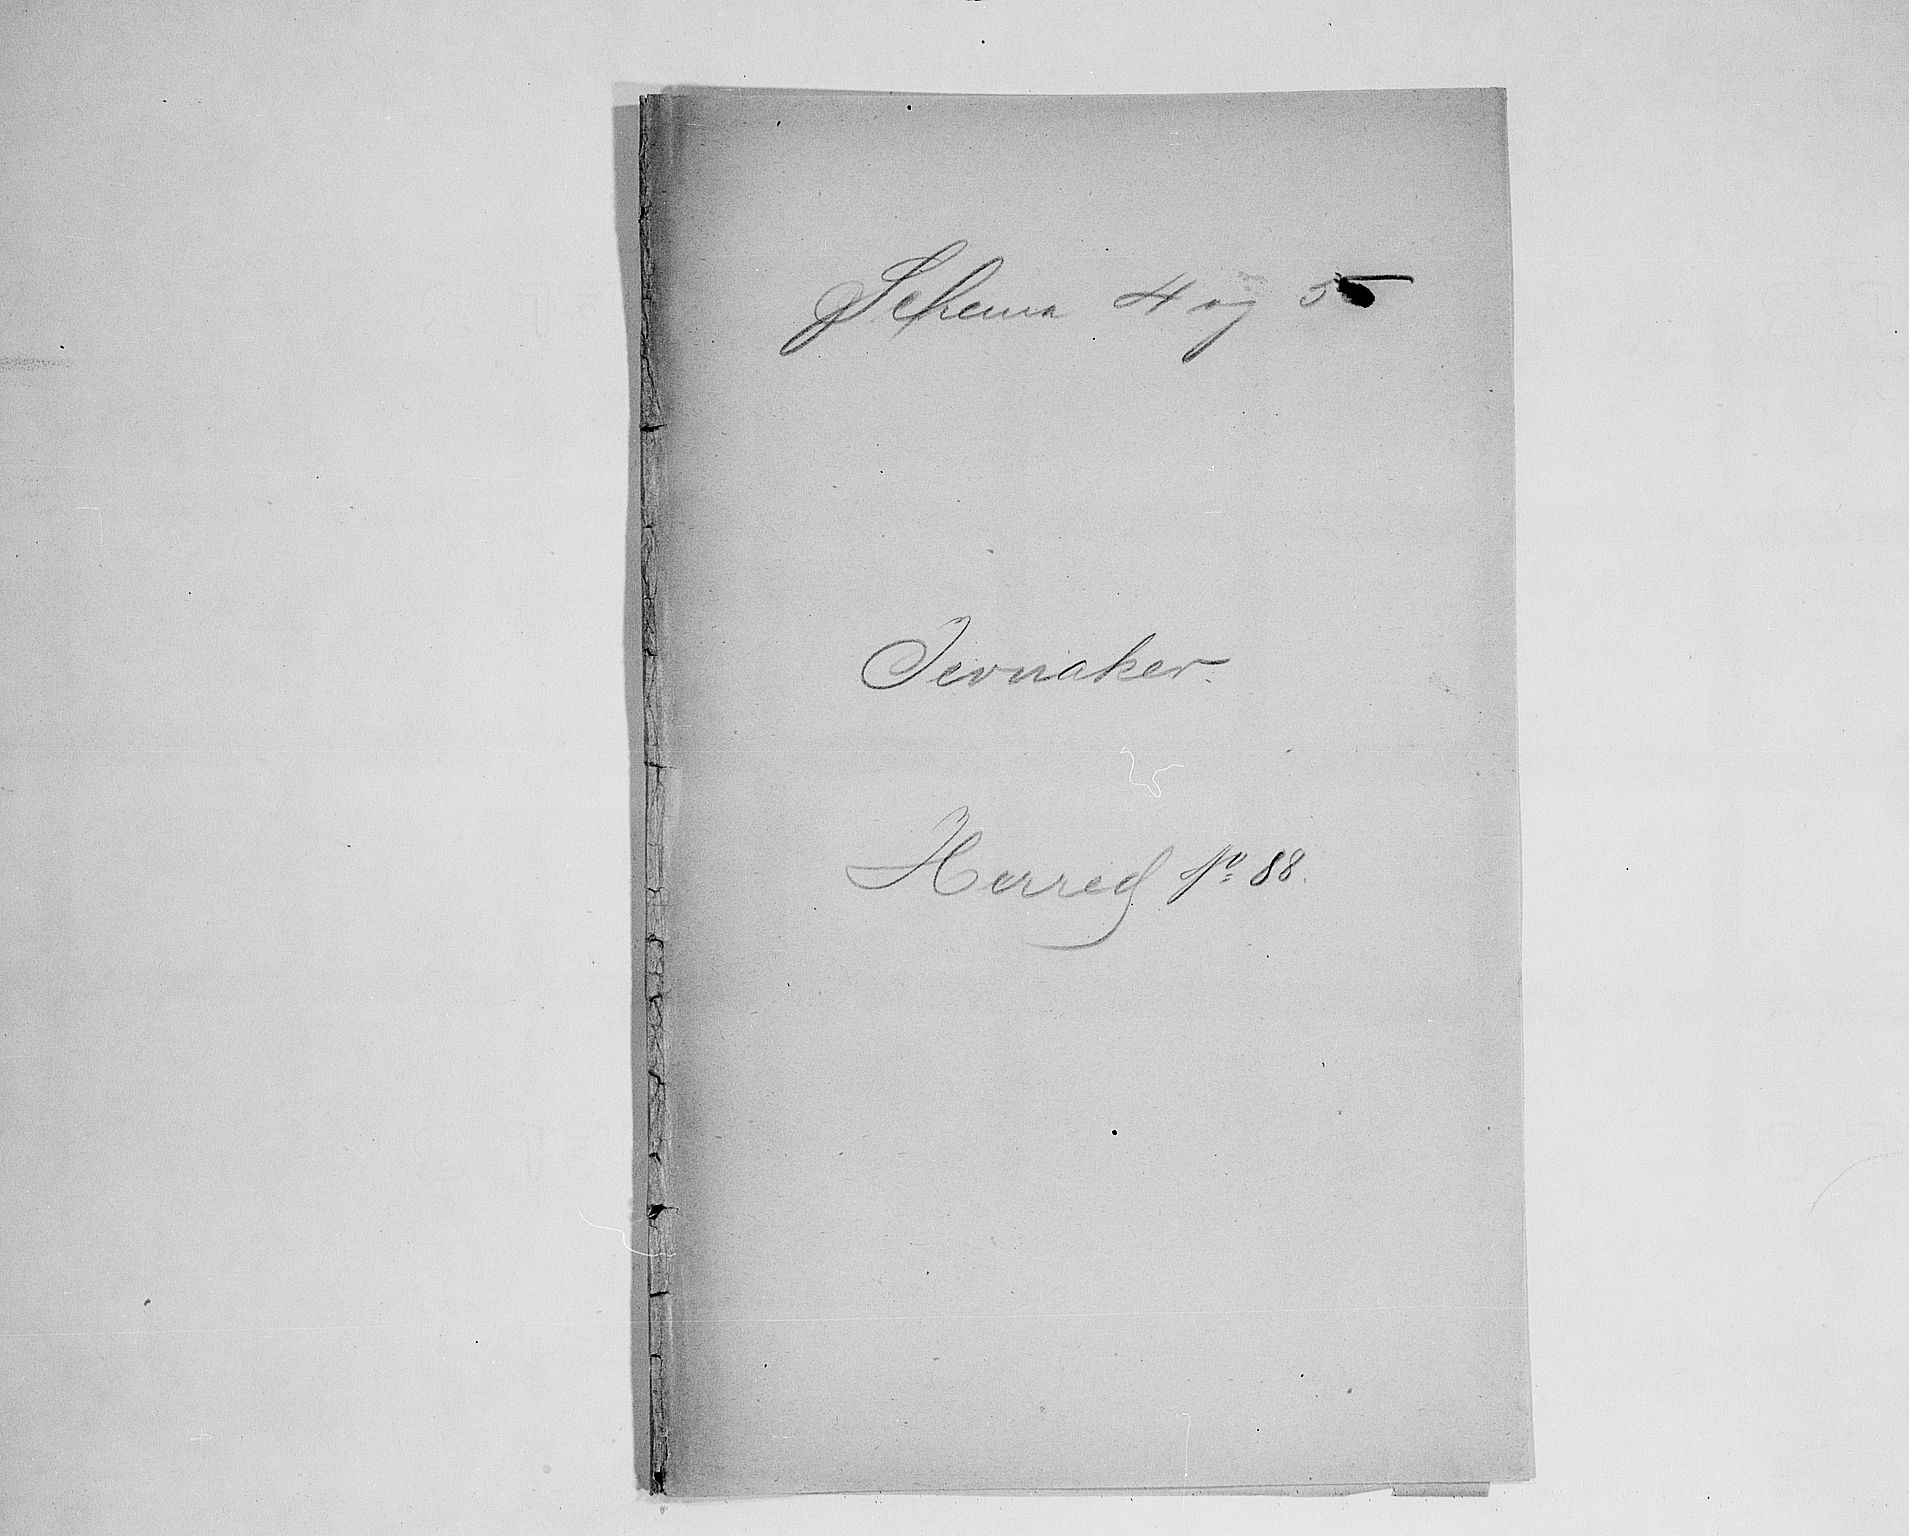 Schema 4 og 5
Jevnaker.
Herred No 88.